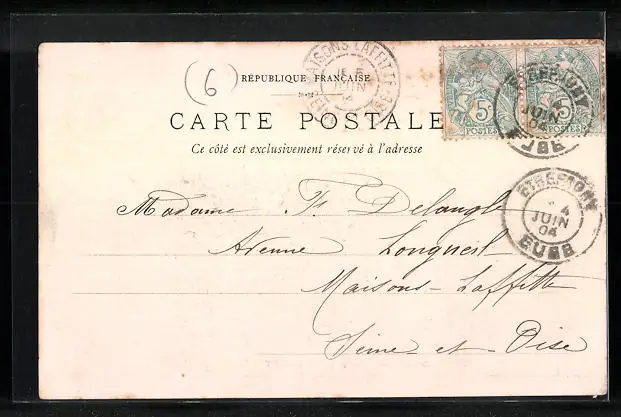 (6)
RÉPUBLIQUE FRANÇAISE
CARTE POSTALE
Ce côté est exclusivement réservé à l'adresse
MAISONS-LAFFITTE
5
JUIN
04
5
POSTES
5
POSTES
4
JUIN
04
ETREPAGNY
4
JUIN
04
EURE
Madame Fs. Delangle
Avenue Longueil
Maisons-Laffitte
Seine-et-Oise